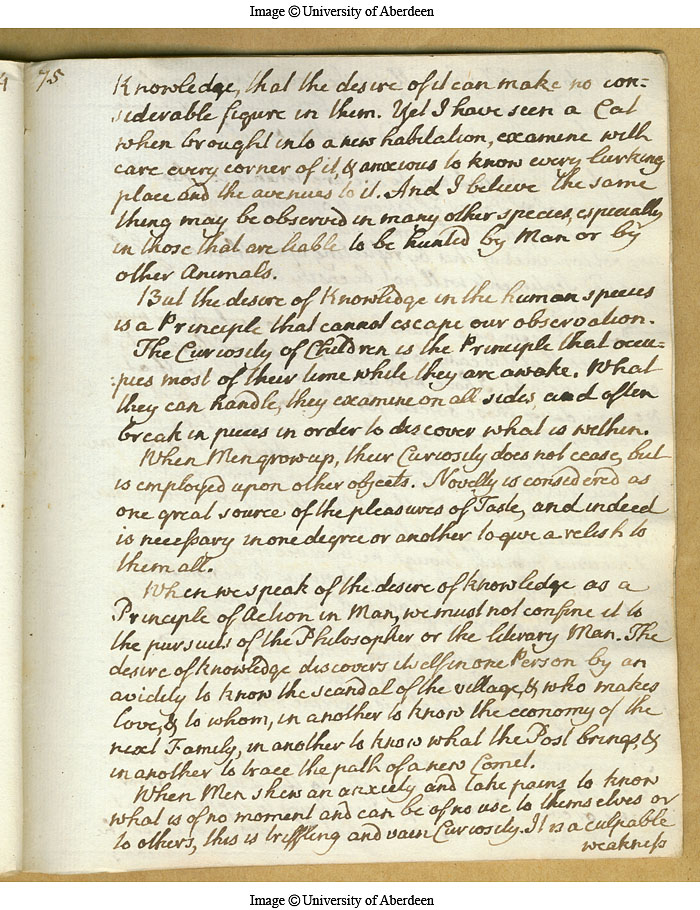 Image © University of Aberdeen
75
Knowledge, that the desire of it can make no con=
siderable figure in them. Yet I have seen a Cat
when brought into a new habitation, examine with
care every corner of it, & anxious to know every lurking
place and the avenues to it. And I believe the same
thing may be observed in many other species, especially
in those that are liable to be hunted by Man or by
other Animals.
But the desire of Knowledge in the human species
is a Principle that cannot escape our observation.
The Curiosity of Children is the Principle that occu=
:pies most of their time while they are awake. What
they can handle, they examine on all sides, and often
break in pieces in order to discover what is within.
When Men grow up, their Curiosity does not cease, but
is employed upon other objects. Novelty is considered as
one great source of the pleasures of Taste, and indeed
is necessary in one degree or another to give a relish to
them all.
When we speak of the desire of knowledge as a
Principle of Action in Man, we must not confine it to
the pursuits of the Philosopher or the literary Man. The
desire of knowledge discovers itself in one Person by an
avidity to know the scandal of the village, & who makes
Love, & to whom, in another to know the economy of the
next Family, in another to know what the Post brings, &
in another to trace the path of a new Comet.
When Men shew an anxiety and take pains to know
what is of no moment and can be of no use to themselves or
to others, this is triffling and vain Curiosity. It is a culpable
weakness
Image © University of Aberdeen